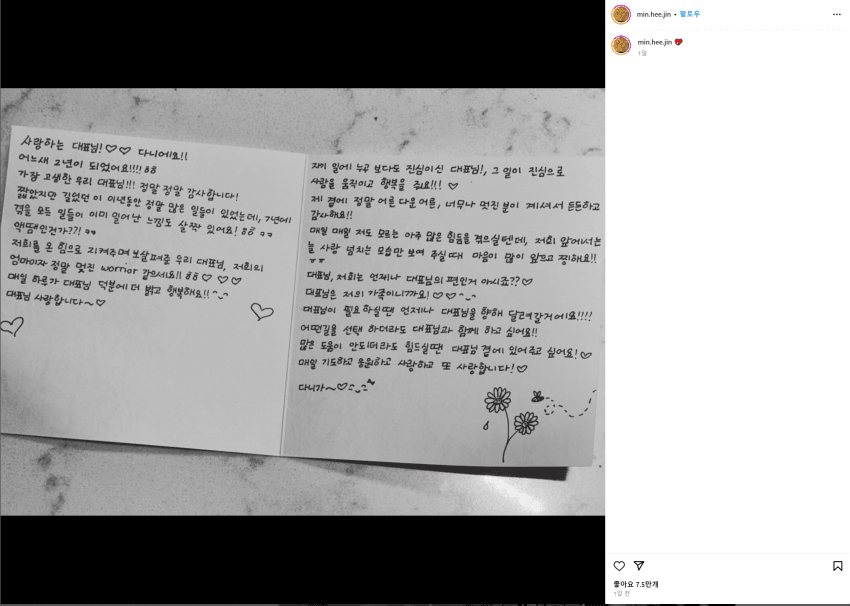 사랑하는 대표님!♡♡ 다니에요!!
어느새 2년이 되었어요!!!! ㅎㅎ
가장 고생한 우리 대표님!!! 정말 정말 감사합니다!
짧았지만 길었던 이 이년동안 정말 많은 일들이 있었는데, 7년에
겪을 모든 일들이 이미 일어난 느낌도 살짝 있어요! ㅎㅎ ㅋㅋ
액땜인건가??! ㅋㅋ
저희를 온 힘으로 지켜주며 보살펴준 우리 대표님, 저희의
엄마이자 정말 멋진 worrior 같으세요!! ㅎㅎ ♡ ♡ ♡
매일 하루가 대표님 덕분에 더 밝고 행복해요!! ^_^
대표님 사랑합니다~♡
자기 일에 누구 보다도 진심이신 대표님!, 그 일이 진심으로
사람을 움직이고 행복을 줘요!!! ♡
제 곁에 정말 어른 다운 어른, 너무나 멋진 분이 계셔서 든든하고
감사해요!!
매일 매일 저도 모르는 아주 많은 힘듦을 겪으실텐데, 저희 앞에서는
늘 사랑 넘치는 모습만 보여 주실때 마음이 많이 아프고 찡해요!!
ㅠㅠ
대표님, 저희는 언제나 대표님의 편인거 아시죠??♡
대표님은 저의 가족이니까요! ♡♡^_^
대표님이 필요하실땐 언제나 대표님을 향해 달려갈거에요!!!!
어떤길을 선택 하더라도 대표님과 함께 하고 싶어요!!
많은 도움이 안되더라도 힘드실땐 대표님 곁에 있어주고 싶어요! ♡
매일 기도하고 응원하고 사랑하고 또 사랑합니다!♡
다니가~♡^_^
min.hee.jin • 팔로우
min.hee.jin
1일
좋아요 7.5만개
1일 전